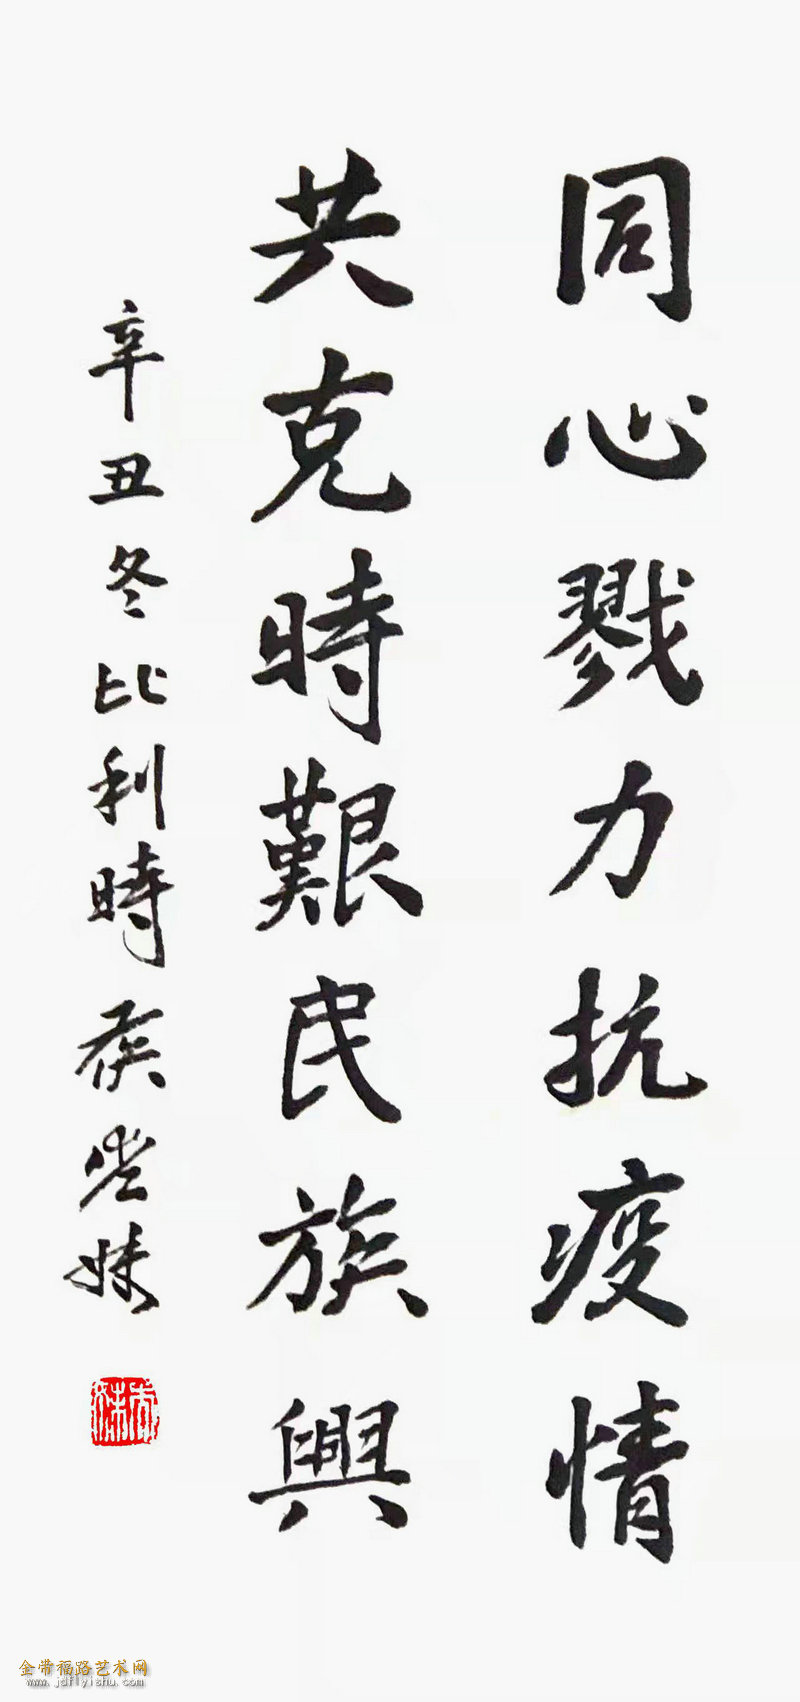 同心戮力抗疫情
共克時艱民族興
辛丑冬比利時侯岩妹
金带福路艺术网
www.jdflyishu.com